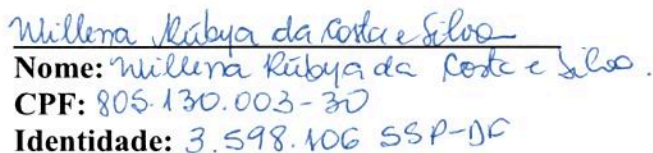 Willena Rúbya da Costa e Silva
Nome: Willena Rúbya da Costa e Silva.
CPF: 805.130.003-30
Identidade: 3.598.106 SSP-DF